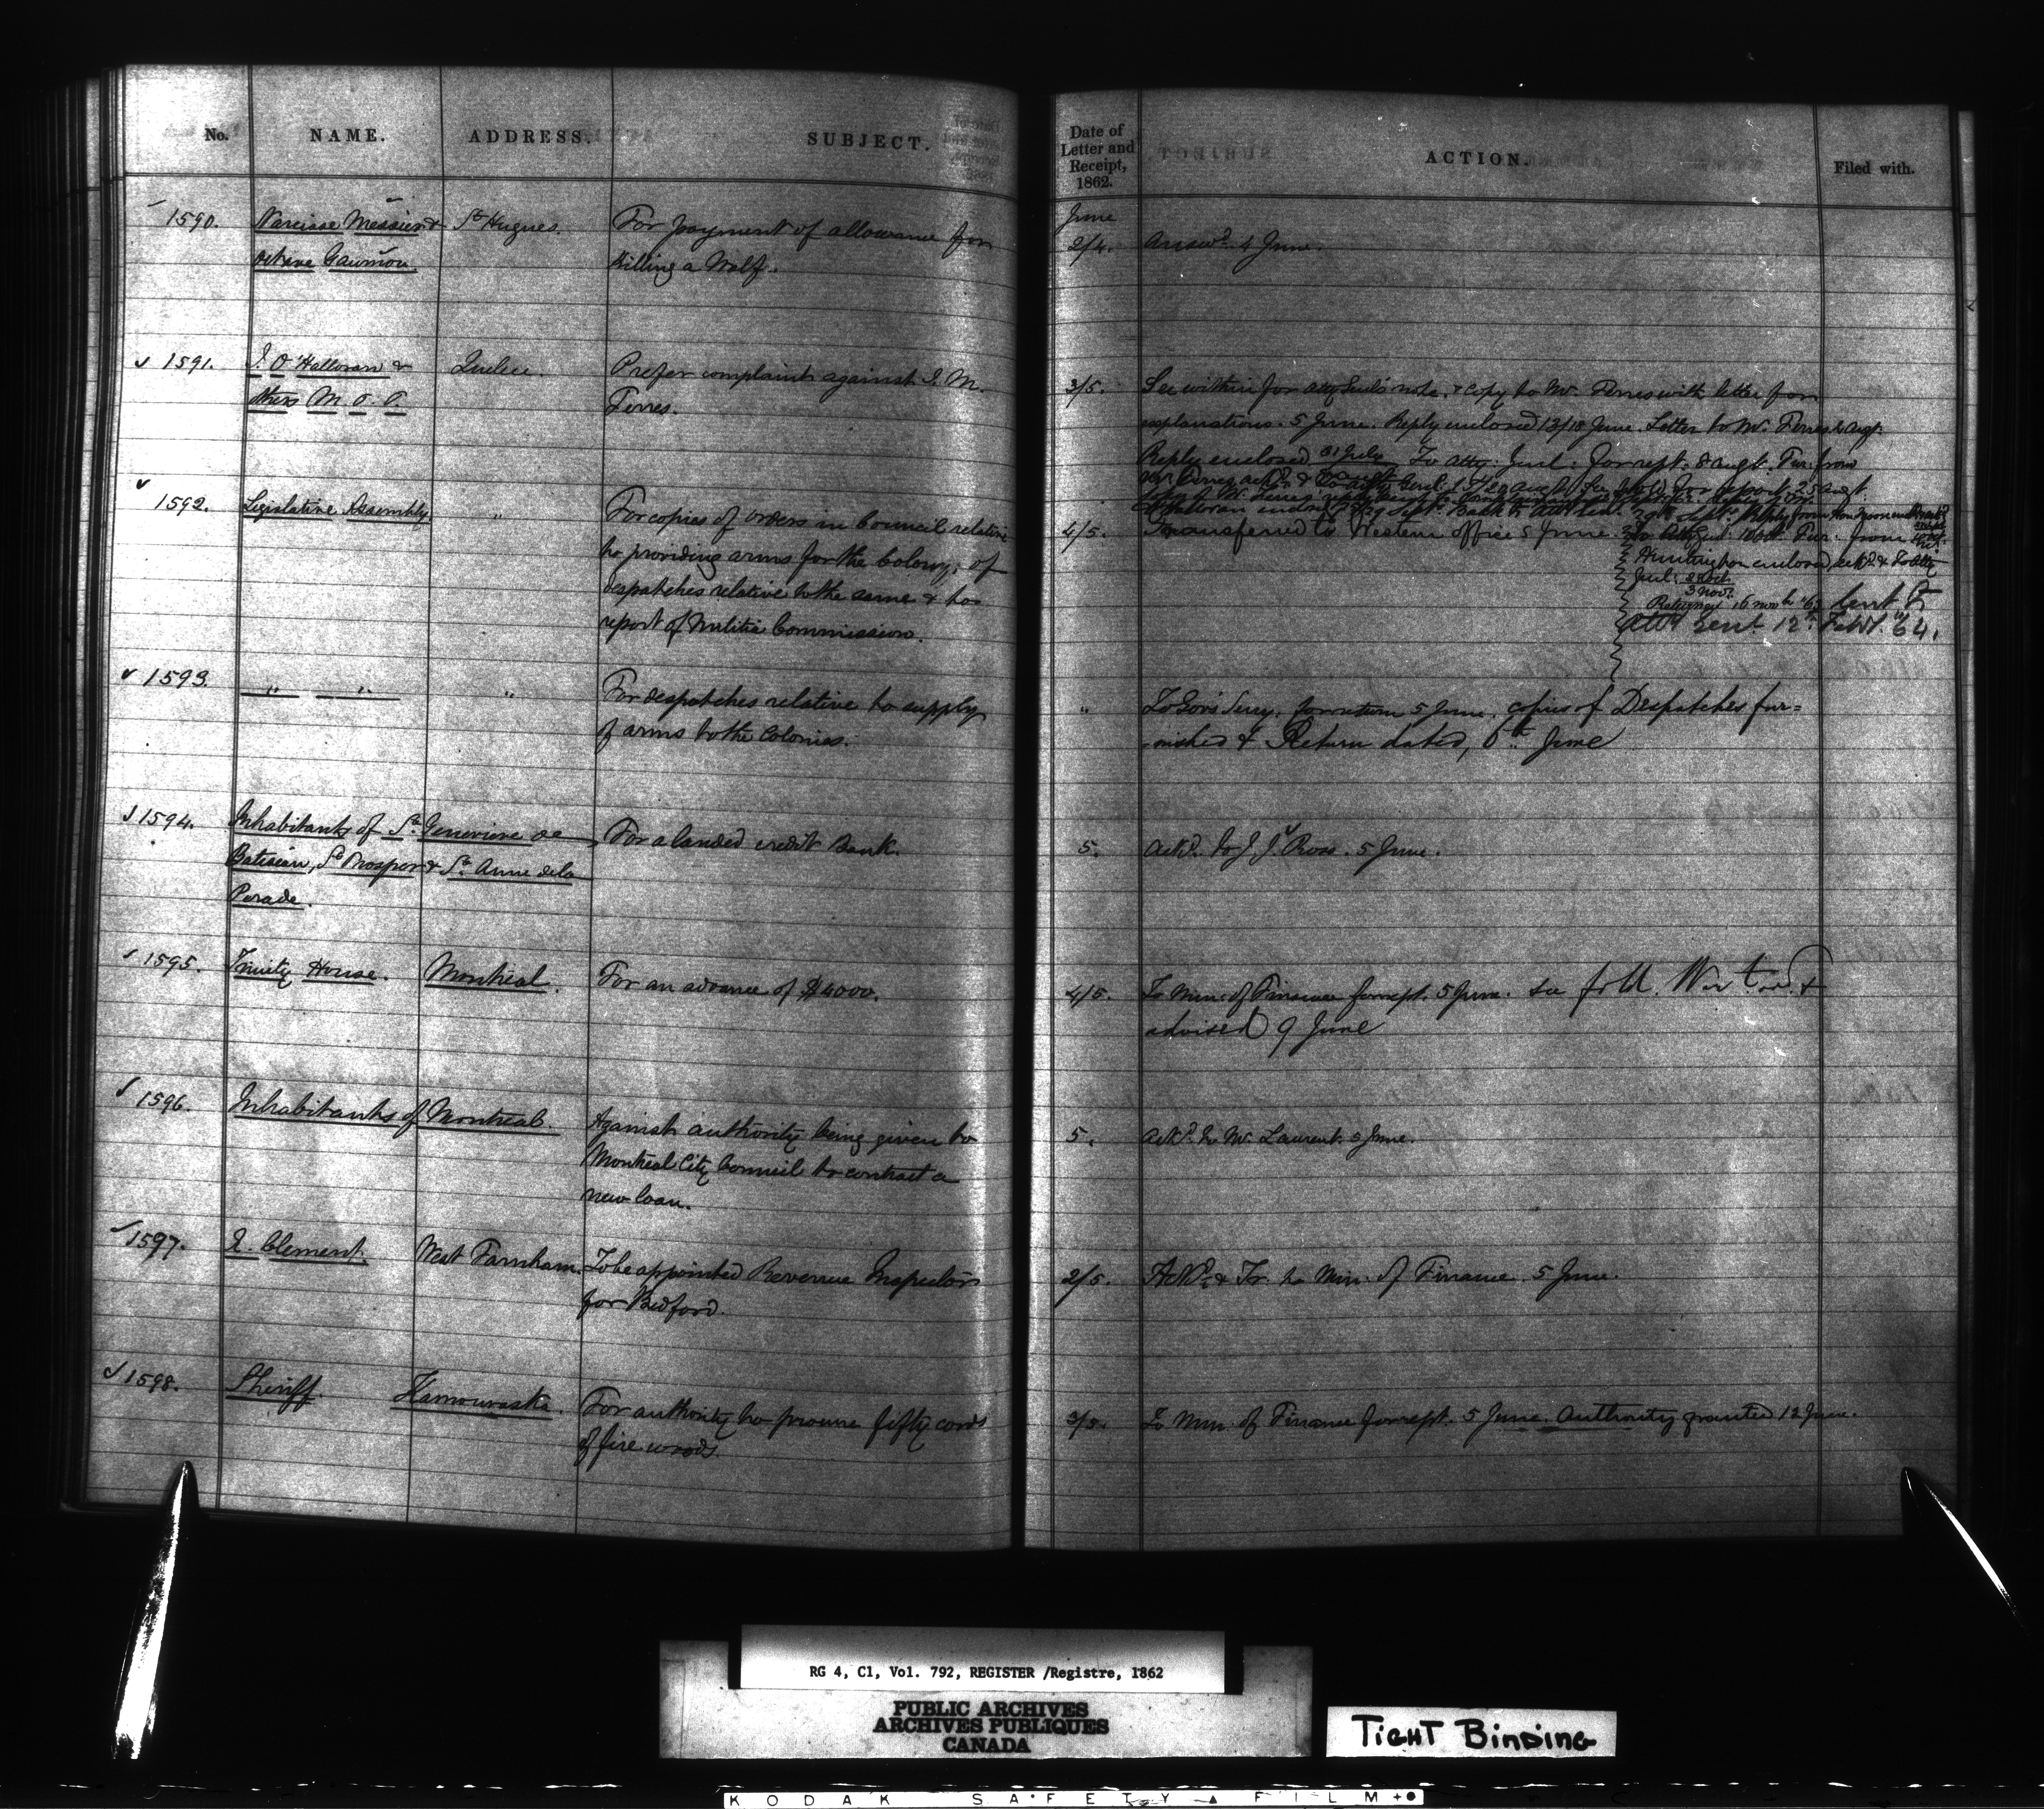 No. NAME. ADDRESS. SUBJECT.
1590. Narcisse Messier & St Hugues. For payment of allowance for
Octave Gaumon killing a Wolf.
✓ 1591. J. O'Halloran & Quebec. Prefer complaint against J. M.
others M. P. P. Ferres.
✓ 1592. Legislative Assembly " For copies of orders in Council relative
to providing arms for the Colony; of
despatches relative to the same & to
report of Militia Commission.
✓ 1593. " " " For despatches relative to supply
of arms to the Colonies.
✓ 1594. Inhabitants of Ste Genevieve de For a landed credit Bank.
Batiscan, St Prosper & Ste Anne de la
Perade.
✓ 1595. Trinity House. Montreal. For an advance of $4000.
✓ 1596. Inhabitants of Montreal. Against authority being given to
Montreal City Council to contract a
new loan.
✓ 1597. Clement. West Farnham. To be appointed Revenue Inspector
for Bedford.
✓ 1598. Sheriff. Kamouraska. For authority to procure fifty cords
of fire wood.
Date of
Letter and
Receipt,
1862.
ACTION.
Filed with.
June
2/4. Answd. 4 June.
3/5. See within for Atty Genl's note. & copy to Mr. Ferres with letter for
explanations. 5 June. Reply enclosed 13/18 June. Letter to Mr. Ferres 2 Augt.
Reply enclosed 31 July To Atty: Genl: for rept. 8 Augt. Fur. from
4/5. Transferred to Western office 5 June.
Huntington enclosed, ackd. & To Atty
Genl:
3 Nov.
Returned 16 Sent to
Sent 12th Feby. "64.
" To Gov's Secy. for return 5 June. copies of Despatches fur=
-nished & Return dated, 6th June
5. Ackd. to J. J. Ross. 5 June.
4/5. To Min: of Finance for rept. 5 June. see fold. &
advised 9 June
5. Ackd. to Mr. Laurent. 5 June.
2/5. Ackd. & Tr. to Min. of Finance. 5 June.
3/5. To Min. of Finance for rept. 5 June. Authority granted 12 June.
RG 4, C1, Vol. 792, REGISTER /Registre, 1862
PUBLIC ARCHIVES
ARCHIVES PUBLIQUES
CANADA
TIGHT BINDING
KODAK SAFETY FILM